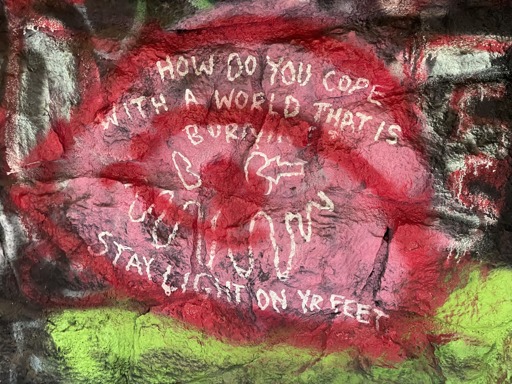 HOW DO YOU COPE
WITH A WORLD THAT IS
BURNIN
STAY LIGHT ON YR FEET